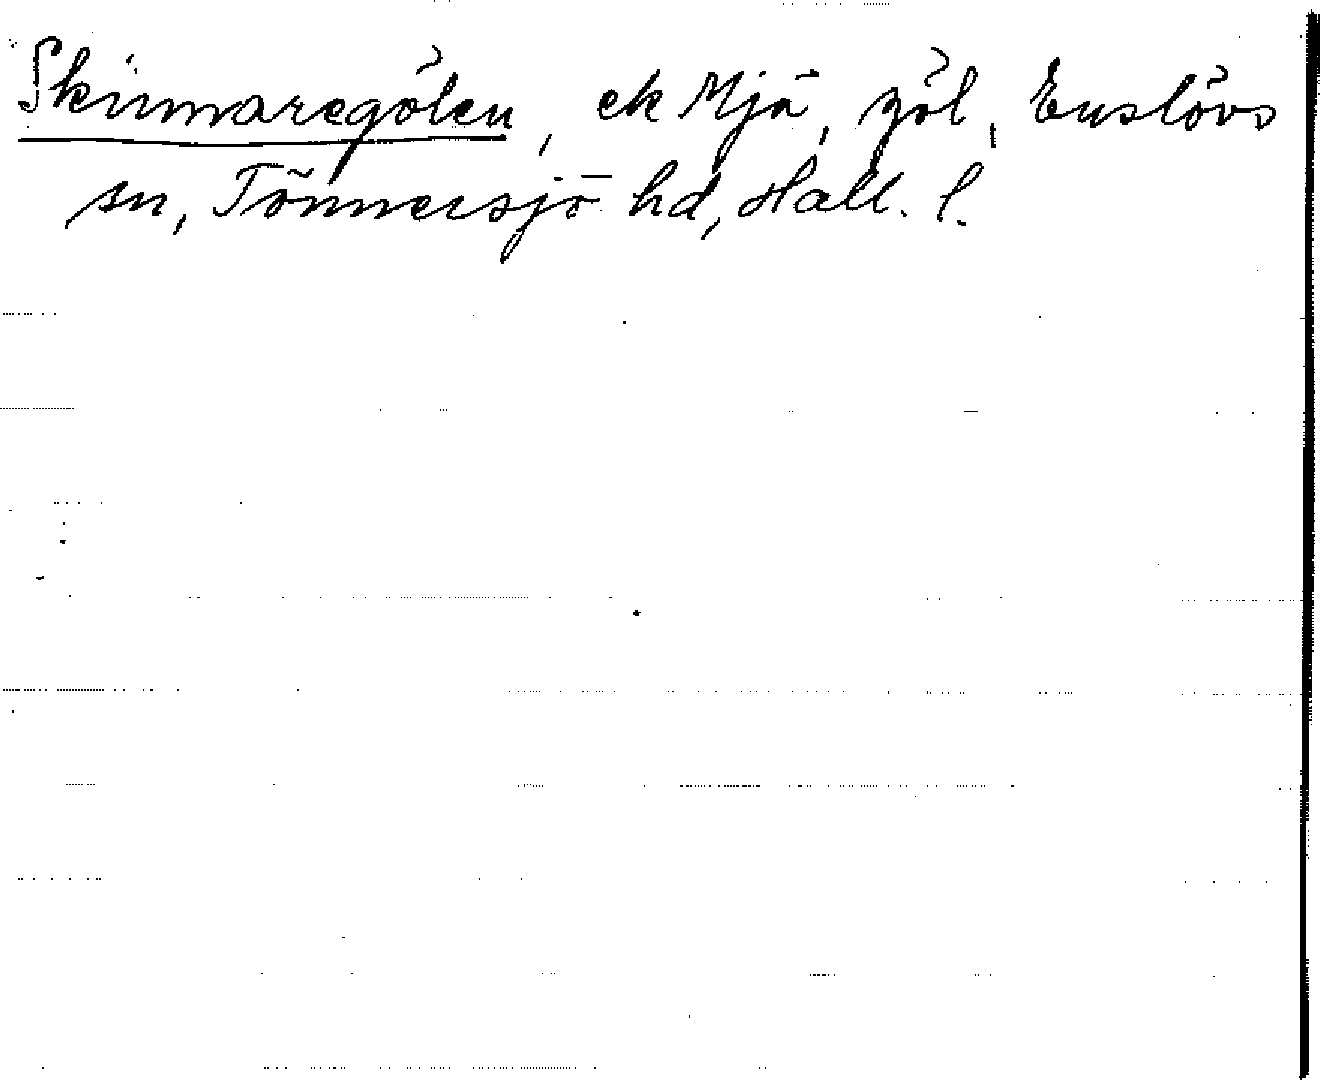 Skinnaregölen, ek Mjä, göl, Enslövs
sn, Tönnersjö hd, Hall. l.